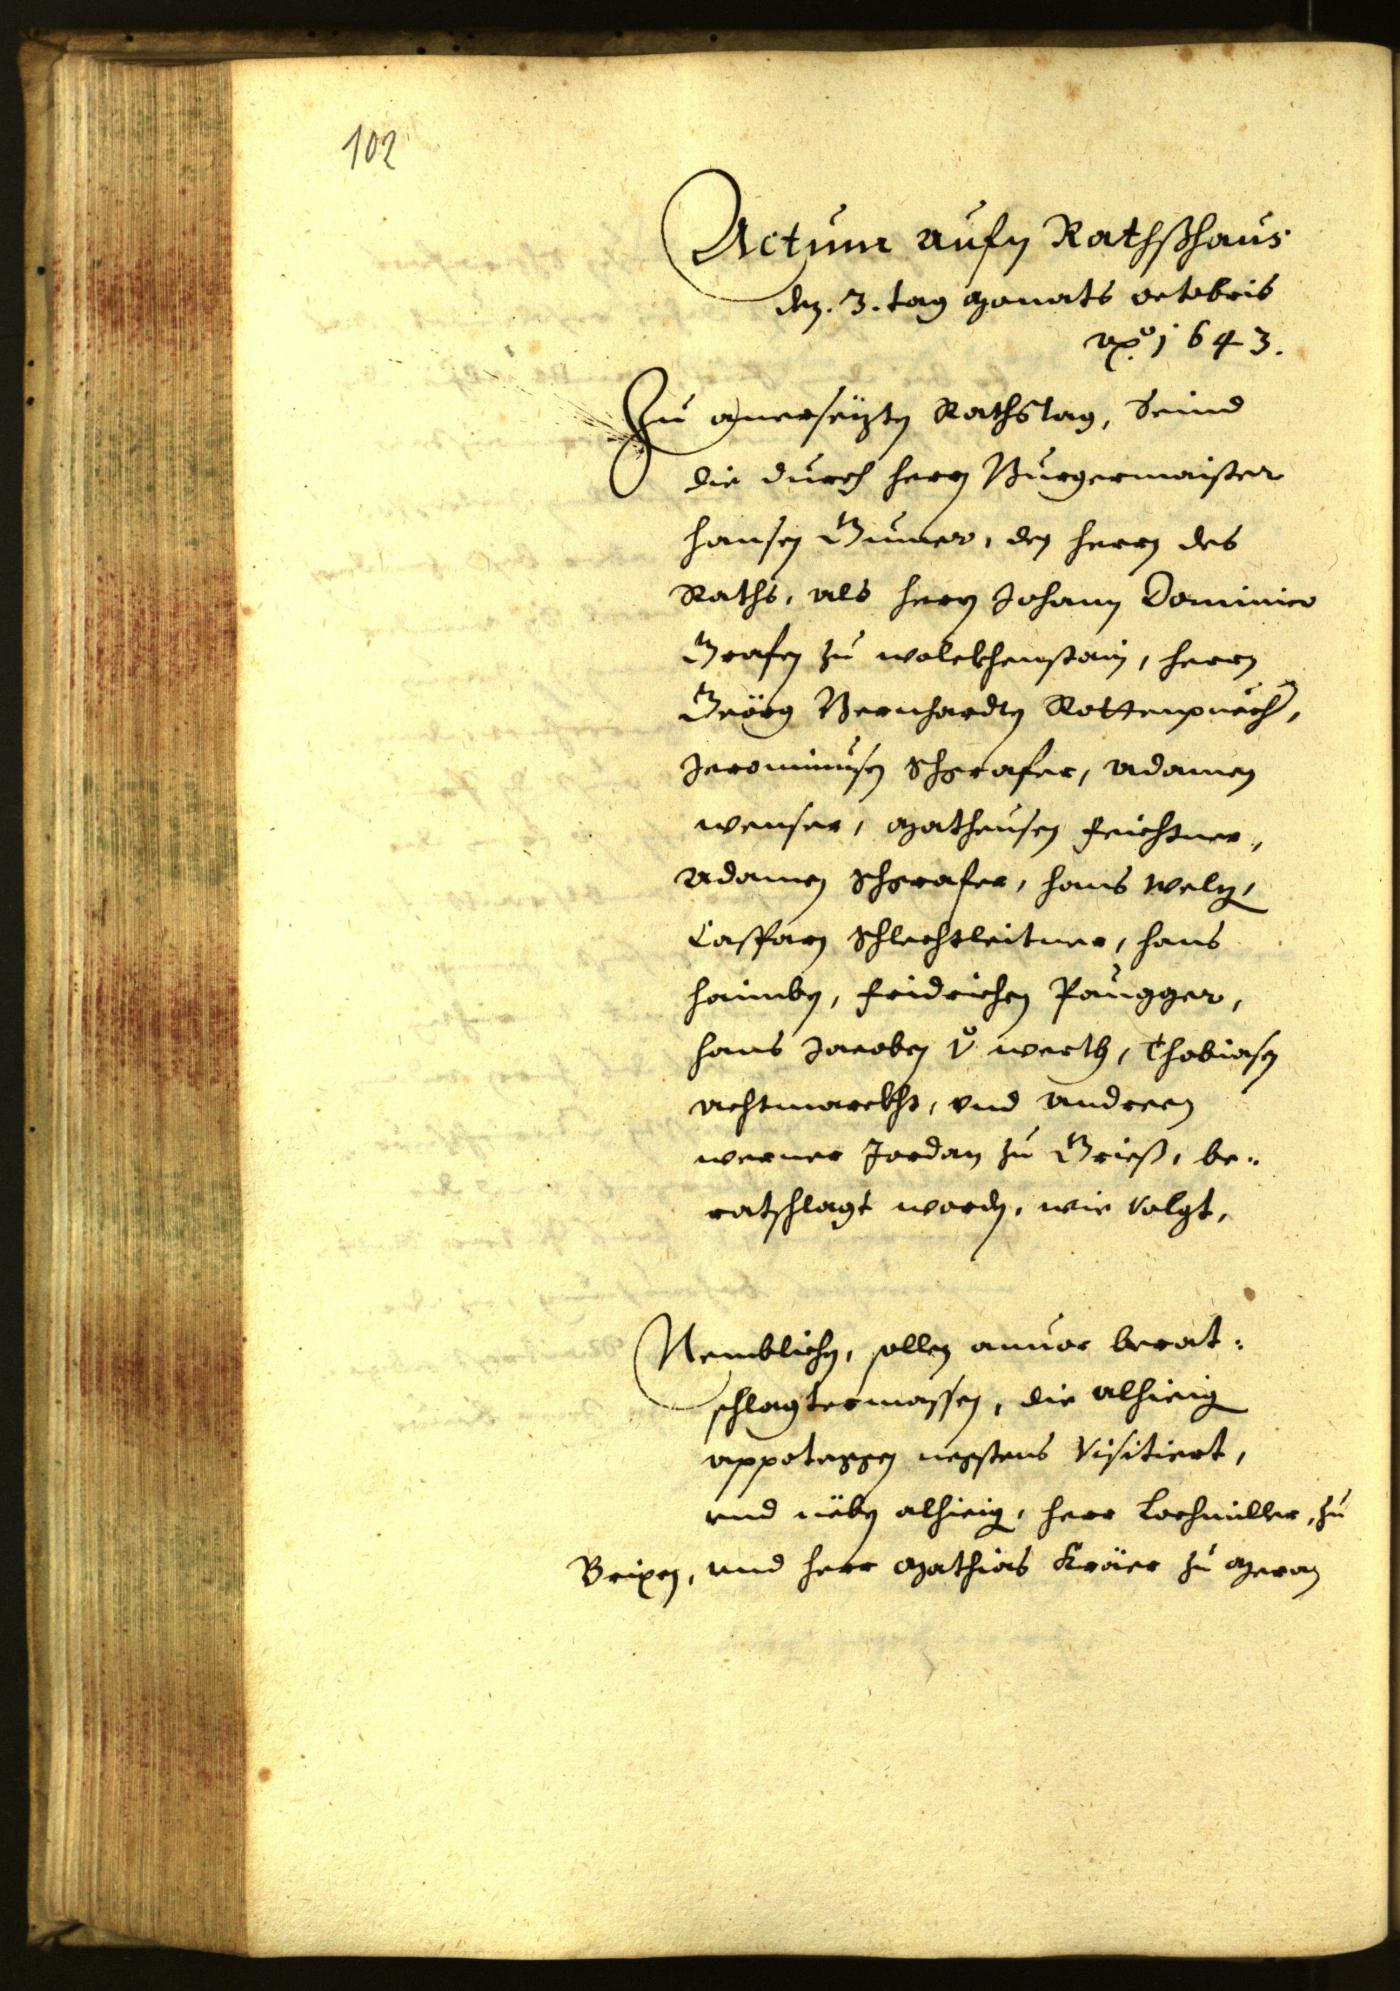 102
Actum aufn Rathßhaus
den. 3. tag monats octobris
aõ. 1643.
Zu anerseizten Rathstag, Seind
die durch herrn Burgermaister
hansen Gumer, den herrn des
Raths, als herrn Johann Dominico
Grafen zu wolckhenstain, herrn
Geörg Bernhardten Rottenpuech,
Jeronimusen Schgrafer, Adamen
wenser, Matheusen Feichtner,
Adamen Schgrafer, hans Welz,
Casparn Schlechtleitner, hans
haimbn, Fridrichen Paugger,
hans Jacoben v werth, Thobiasen
Achtmarckht, und Andreen
werner Jordan zu Grieß, be-
ratschlagt worden, wie volgt,
Nemblichen, sollen anvor berat-
schlagtermassen, die alhieig
appoteggen negstens Visitiert,
und neben alhieig, herr Lochmiller, zu
Brixen, und herr Mathias Kräer zu Meran